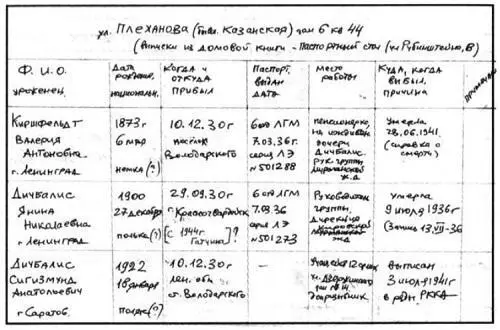 ул. Плеханова (бывш. Казанская) дом 6 кв 44
(выписки из домовой книги - Паспортный стол (ул Рубинштейна, 8)
Ф. И. О. уроженец.
Дата рождение, национальн.
Когда и откуда прибыл
Паспорт, выдан дата
место работы
Куда, когда выбыл, причина
Примечание
Киршфельдт Валерия Антоновна г. Ленинград
1873г 6 мар немка (?)
10.12.30г посёлок Володарского
6 ого ЛГМ 7.03.36г. серия ЛЭ №501288
пенсионерка, на иждивении дочери Дичбалис рук. групп ж.д.
Умерла 28.06.1941. (справка о смерти)
Дичбалис Янина Николаевна г Ленинград
1900 27 декабря полька (?)
29.09.30г г. Красногвардейск [с 1944г Гатчина]?
6 ого ЛГМ 7.03.36 серия ЛЭ №501273
Руководитель группы Дирекция жд
Умерла 9 июля 1936г (Запись 13.VII-36
Дичбалис Сигизмунд Анатольевич г Саратов.
1922 18 января поляк (?)
10.12.30г лен. обл ст. Володарского
—
Учащийся 12 ул. Дзержинского №
выписан 3 июля 1941г в рдн РККА